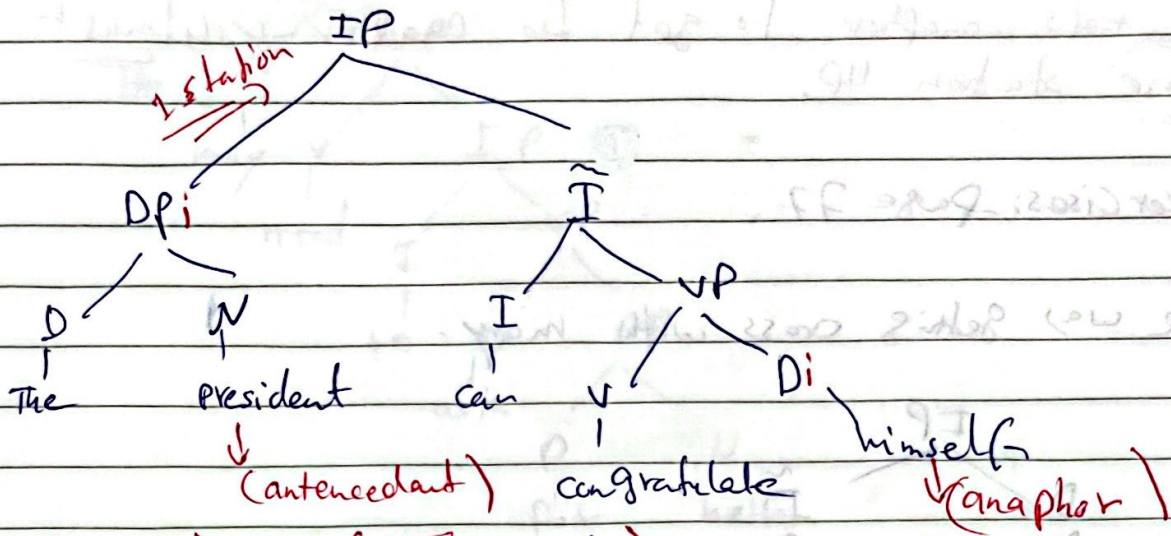 IP
1 station
DPi Ĩ
D N I VP
The president can V Di
himself
(antencedant) congratulate (anaphor)